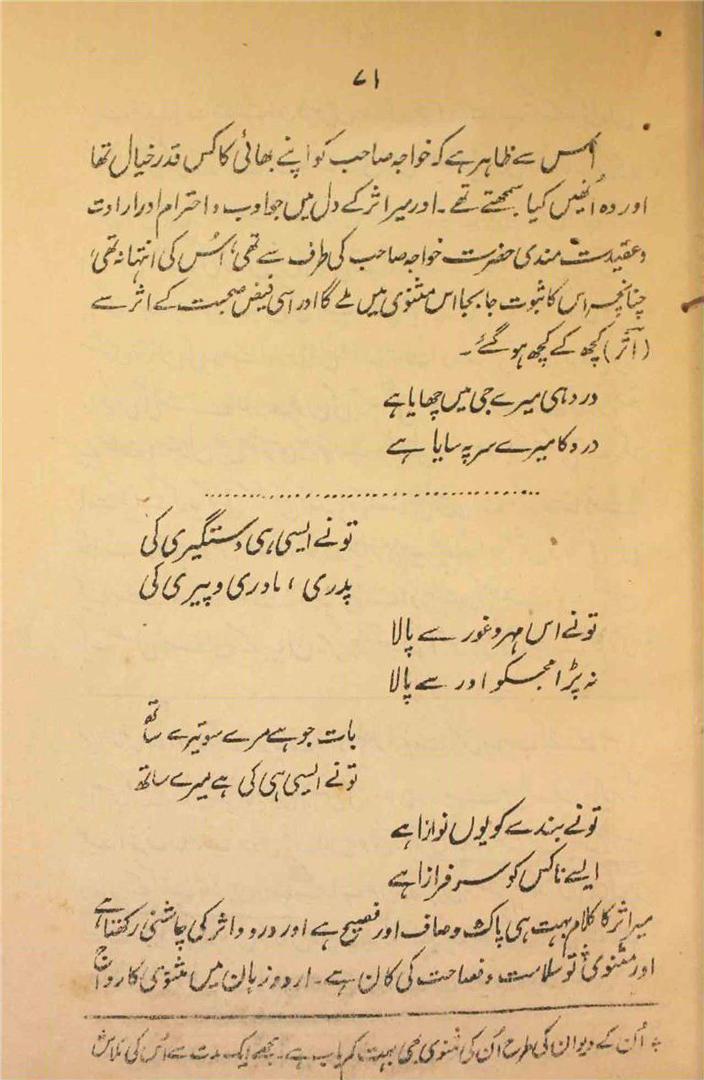 ۷۱
اس سے ظاہر ہے کہ خواجہ صاحب کو اپنے بھائی کا کس قدر خیال تھا
اور وہ اُنھیں کیا سمجھتے تھے۔ اور میر اثر کے دل میں جو ادب و احترام اور ارادت
و عقیدت مندی حضرت خواجہ صاحب کی طرف سے تھی، اُس کی انتہا نہ تھی،
چنانچہ اس کا ثبوت جا بجا اس مثنوی میں ملے گا اور اسی فیض صحبت کے اثر سے
(اثر) کچھ کے کچھ ہو گئے۔
درد ہی میرے جی میں چھایا ہے
درد کا میرے سر پہ سایا ہے
تو نے ایسی ہی دستگیری کی
پدری، مادری و پیری کی
تو نے اس مہر و غور سے پالا
نہ پڑا مجکو اور سے پالا
بات جو ہے مرے سو تیرے ساتھ
تو نے ایسی ہی کی ہے میرے ساتھ
تو نے بندے کو یوں نوازا ہے
ایسے ناکس کو سرفرازا ہے
میر اثر کا کلام بہت ہی پاک و صاف اور فصیح ہے اور درد و اثر کی چاشنی رکھتا ہے
اور مثنوی تو سلاست و فصاحت کی کان ہے۔ اردو زبان میں مثنوی کا رواج
اُن کے دیوان کی طرح اُن کی مثنوی بھی بہت کم یاب ہے۔ مجھے ایک مدت سے اُس کی تلاش